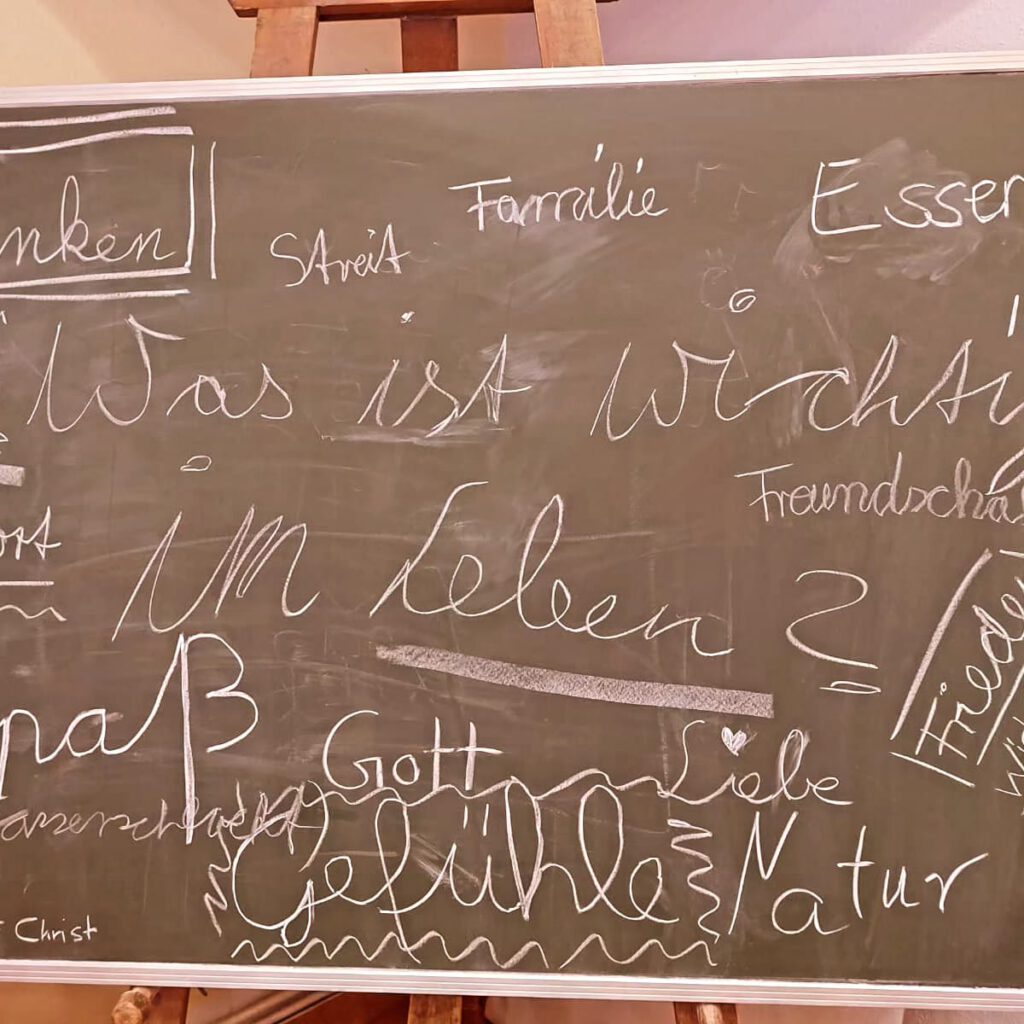 nken
Streit
Familie
Essen
Was ist wichti
ort
Freundscha
im Leben?
Frieden
paß
Gott
Liebe
Gefühle
Natur
Christ